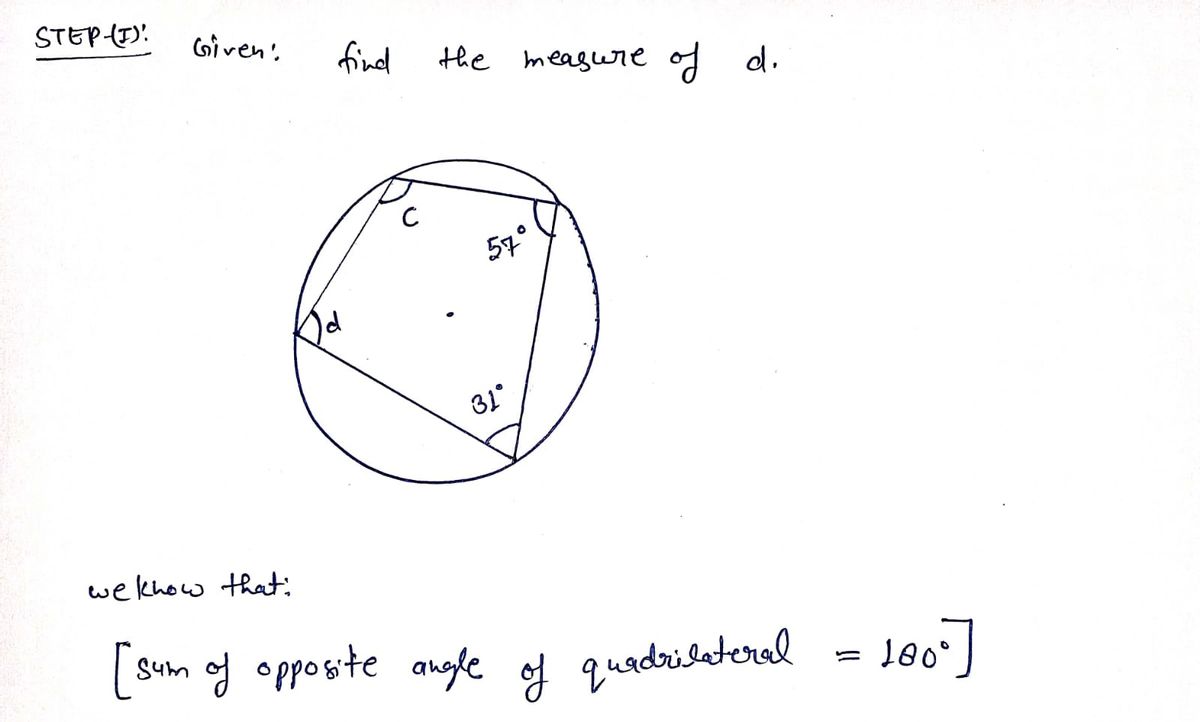 STEP-(I):
Given: find the measure of d.
C
57°
d
31°
we know that:
[sum of opposite angle of quadrilateral = 180°]